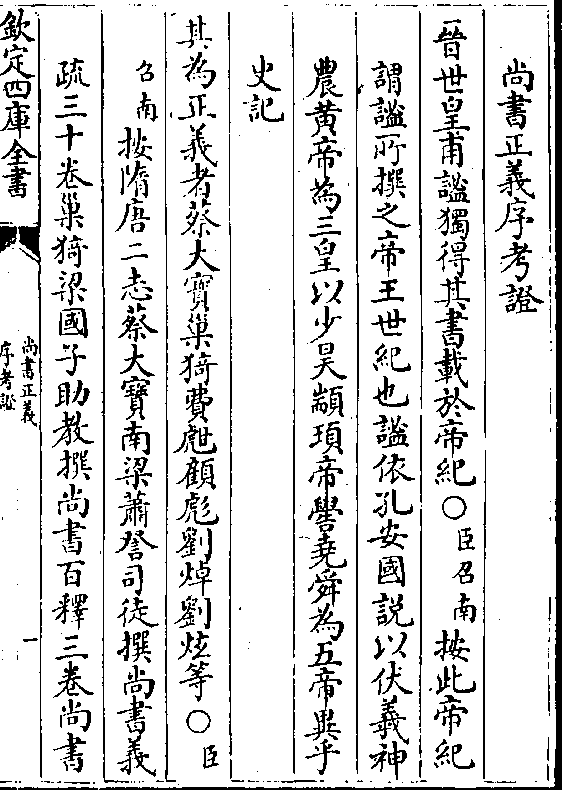 尚書正義序考證
晉世皇甫謐獨得其書載於帝紀〇臣召南按此帝紀
謂謐所撰之帝王世紀也謐依孔安國說以伏羲神
農黃帝為三皇以少昊顓頊帝嚳堯舜為五帝異乎
史記
其為正義者蔡大寶巢猗費甝顧彪劉焯劉炫等〇臣
召南按隋唐二志蔡大寶南梁蕭詧司徒撰尚書義
疏三十卷巢猗梁國子助教撰尚書百釋三卷尚書
欽定四庫全書
尚書正義
序考證
一